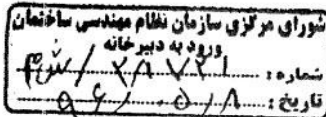 شورای مرکزی سازمان نظام مهندسی ساختمان
ورود به دبیرخانه
شماره: ۲۸۷۲۱/ش م
تاریخ: ۹۶/۰۵/۰۸